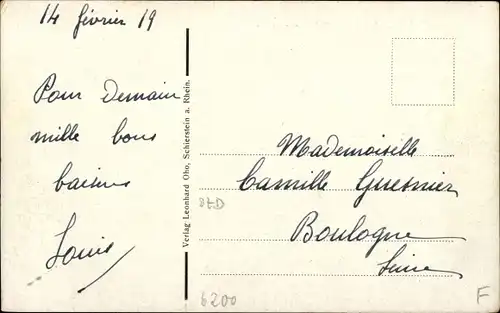 14 février 19
Pour Demain
mille bons
baisers
Louis
Verlag Leonhard Oho, Schierstein a. Rhein.
Mademoiselle
Camille Guesnier
Boulogne
Seine
87D
6200
F